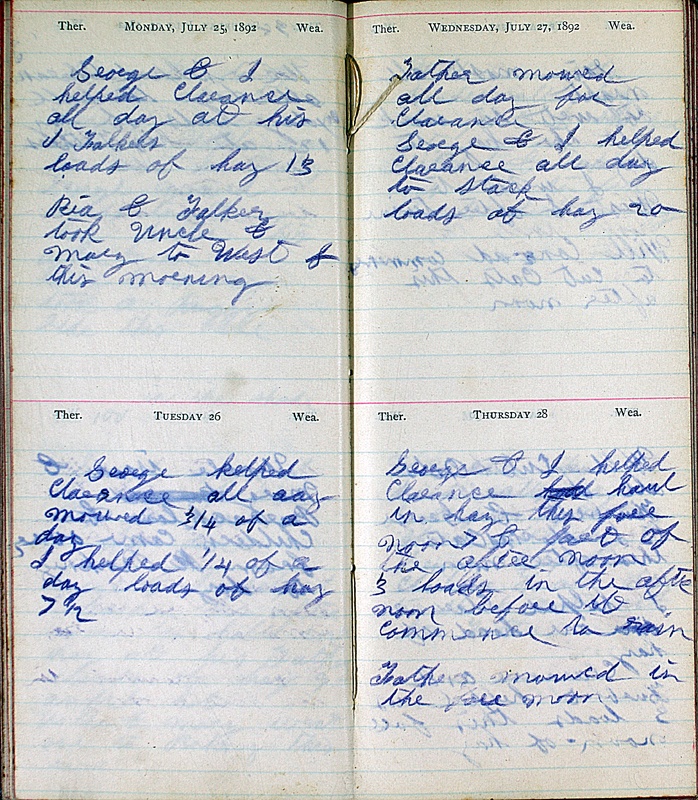 Ther. MONDAY, JULY 25, 1892 Wea.
George & I
helped Clarance
all day at his
loads of hay 13
Ria &
took Uncle &
Mary to West
this morning
Ther. TUESDAY 26 Wea.
George helped
Clarance all day
mowed 3/4 of a
day
I helped 1/4 of a
day loads of hay
7 1/2
Ther. WEDNESDAY, JULY 27, 1892 Wea.
Father mowed
all day for
Clarance
George & I helped
Clarance all day
to stack
loads of hay 20
Ther. THURSDAY 28 Wea.
George & I helped
Clarance haul
in hay this fore
noon & part of
the after noon
3 loads in the after
noon before it
commence to rain
Father mowed in
the fore noon